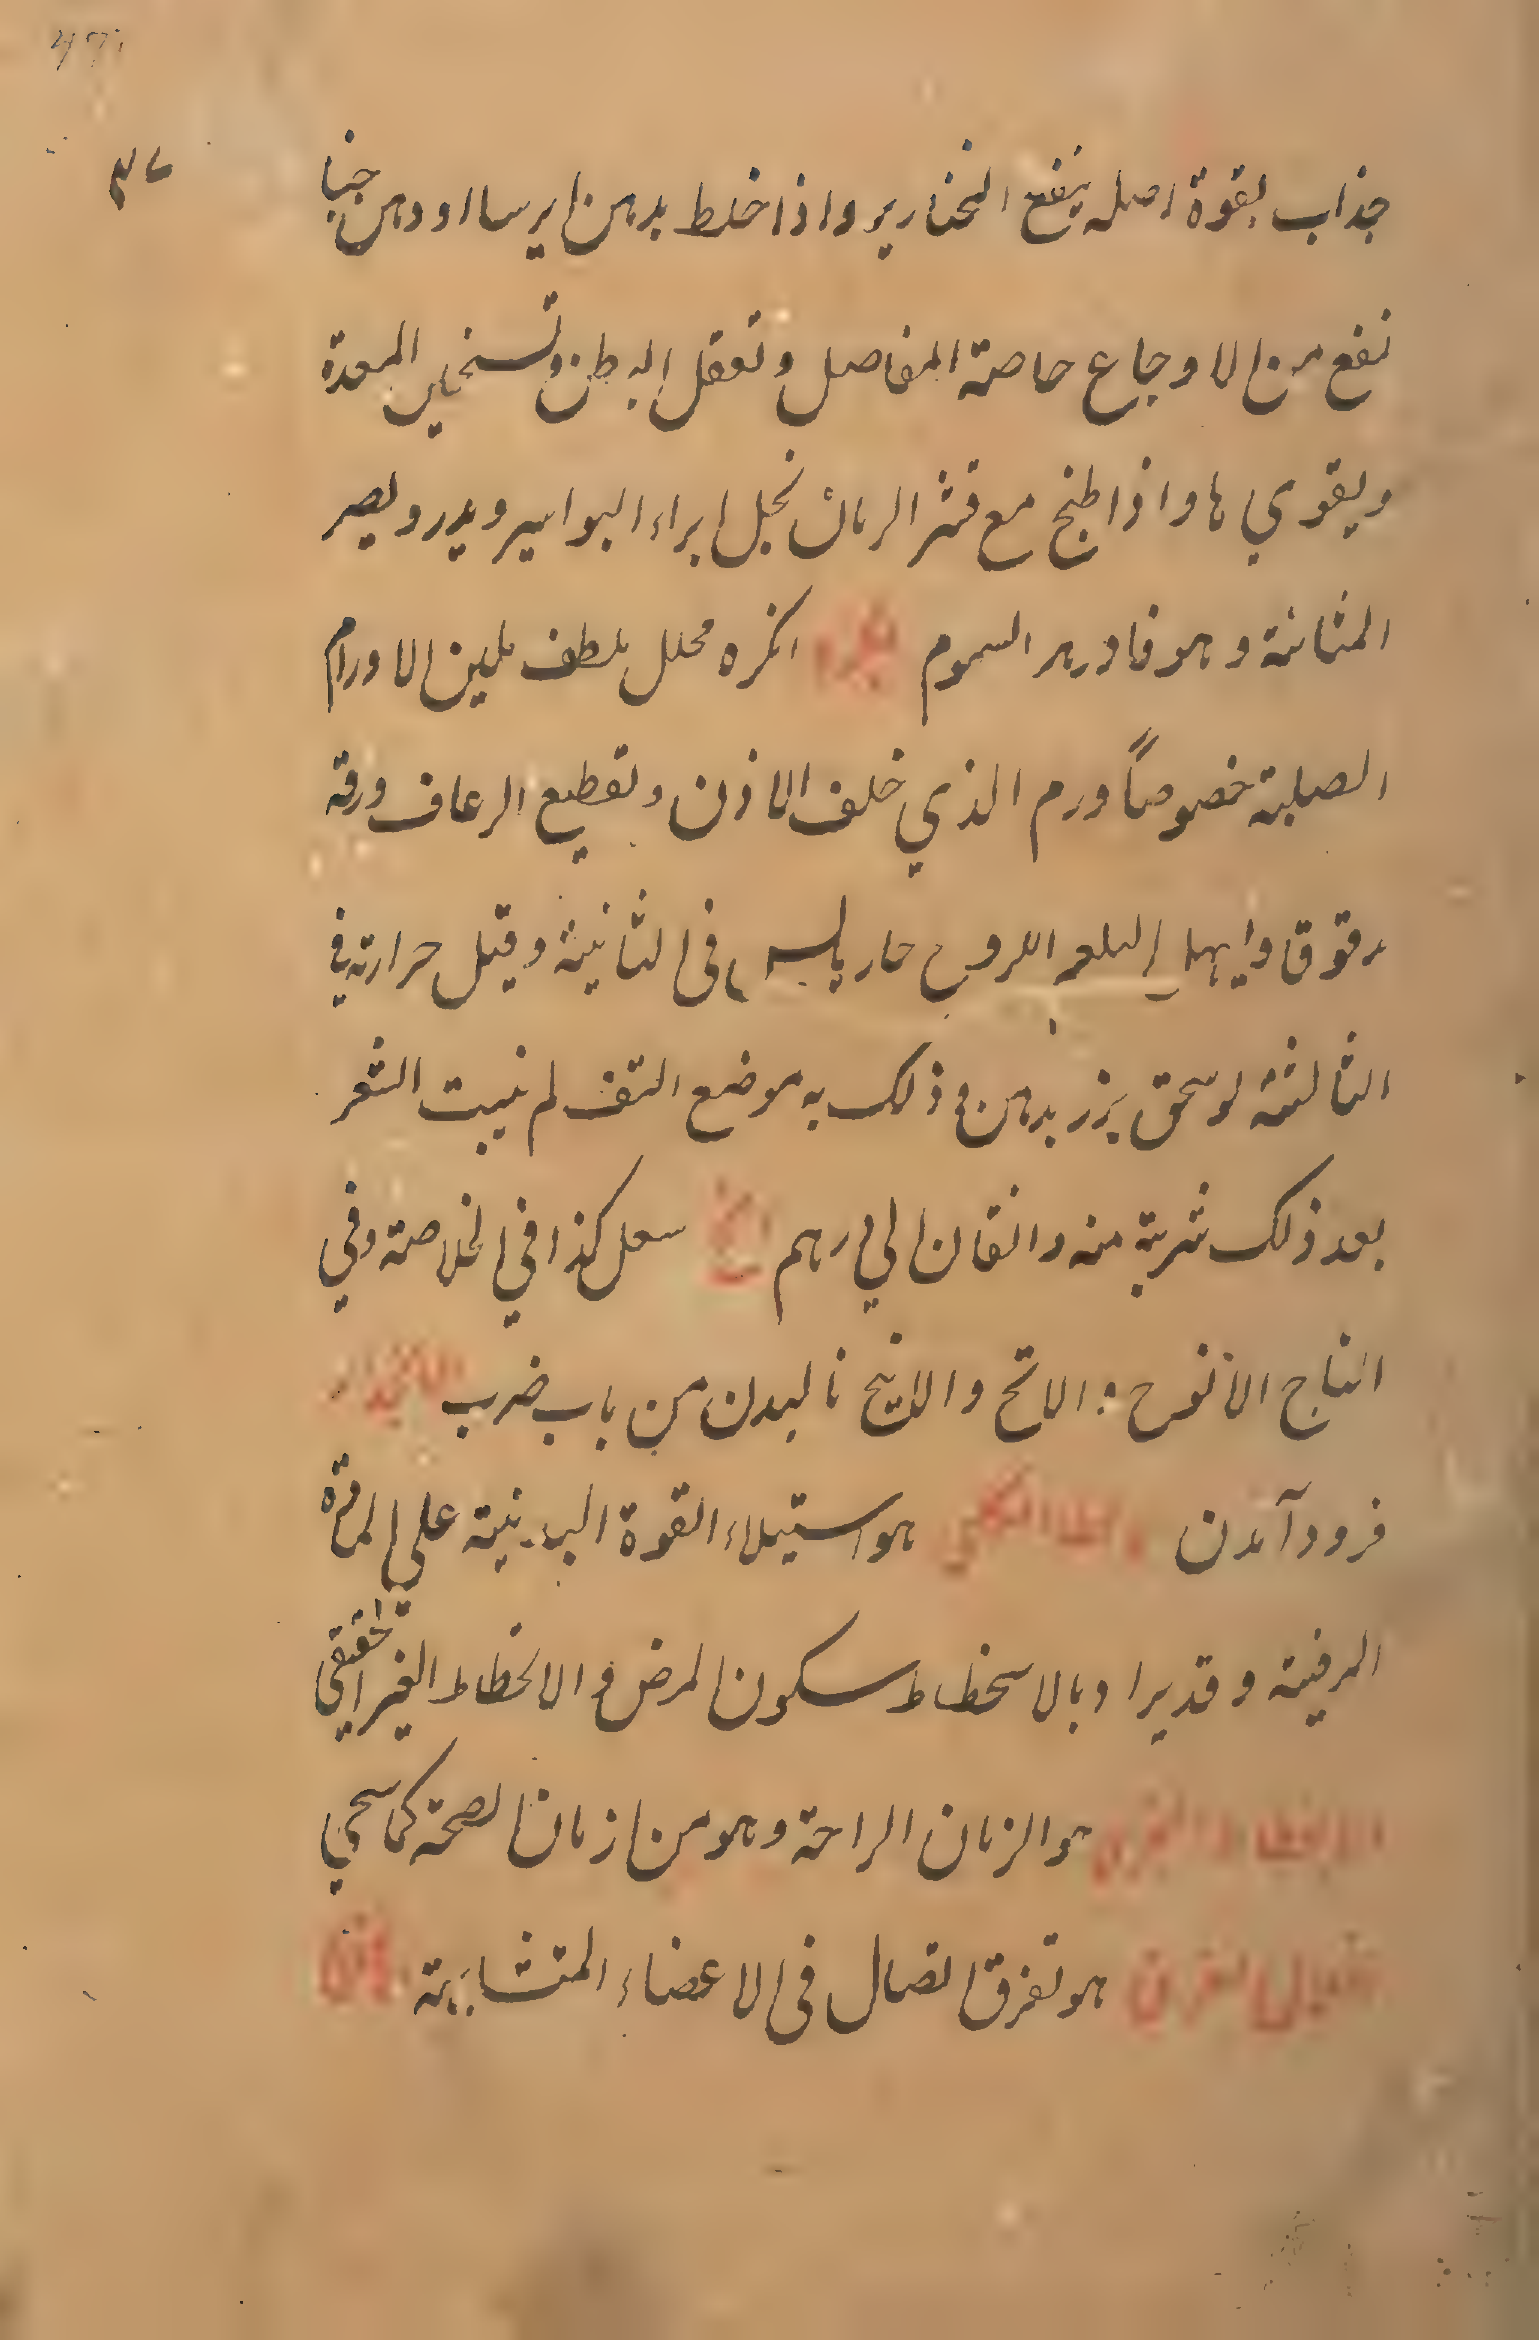 جذاب بقوة اصله ينفع الخنازير واذا خلط بدهن ايرسا او دهن حنا
نفع من الاوجاع خاصة المفاصل وتعقل البطن وتسخين المعدة
ويقويها واذا طبخ مع قشر الرمان نجل ابراء البواسير ويدر ويضر
المثانة وهو فادزهر السموم انجره محلل ملطف ملين الاورام
الصلبة خصوصاً ورم الذي خلف الاذن وتقطيع الرعاف ورقه
مدقوق حار يابس فى الثانية وقيل حرارته في
الثالثة لو سحق بزر بدهن و ذلك به موضع النتف لم ينبت الشعر
بعد ذلك شربة منه دانقان الي درهم سعل كذا في الخلاصة وفي
التاج الأنوح والانيح ناليدن من باب ضرب الانحدار
فرود آمدن هو استيلاء القوة البدنية علي المادة
المرضية وقد يراد بالانحطاط سكون المرض و الانحطاط الغير الحقيقي
هو الزمان الراحة وهو من ازمان الصحة كما سيجي
انحلال الفرد هو تفرق اتصال فى الاعضاء المتشابهة